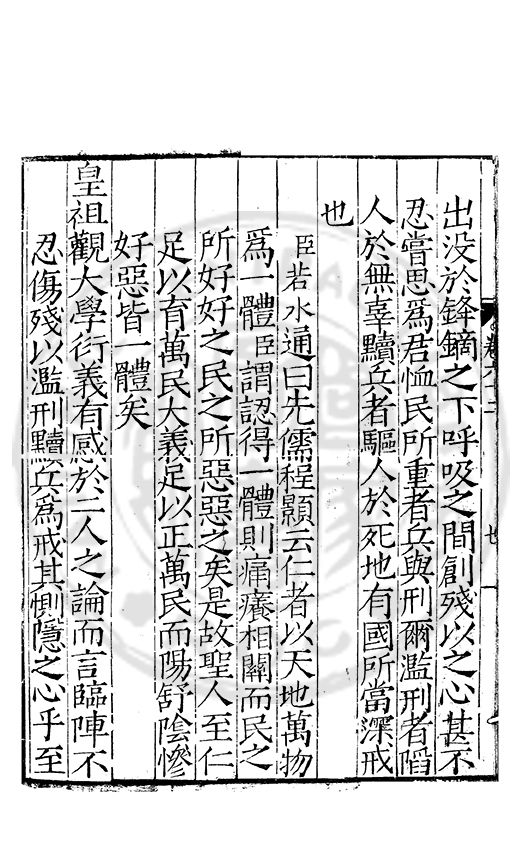 出没於鋒鏑之下呼吸之間創殘以之心甚不
忍嘗思爲君恤民所重者兵與刑爾濫刑者陷
人於無辜黷兵者驅人於死地有國所當深戒
也
臣若水通曰先儒程顥云仁者以天地萬物
爲一體臣謂認得一體則痛癢相關而民之
所好好之民之所惡惡之矣是故聖人至仁
足以育萬民大義足以正萬民而陽舒陰慘
好惡皆一體矣
皇祖觀大學衍義有感於二人之論而言臨陣不
忍傷殘以濫刑黷兵爲戒其惻隱之心乎至